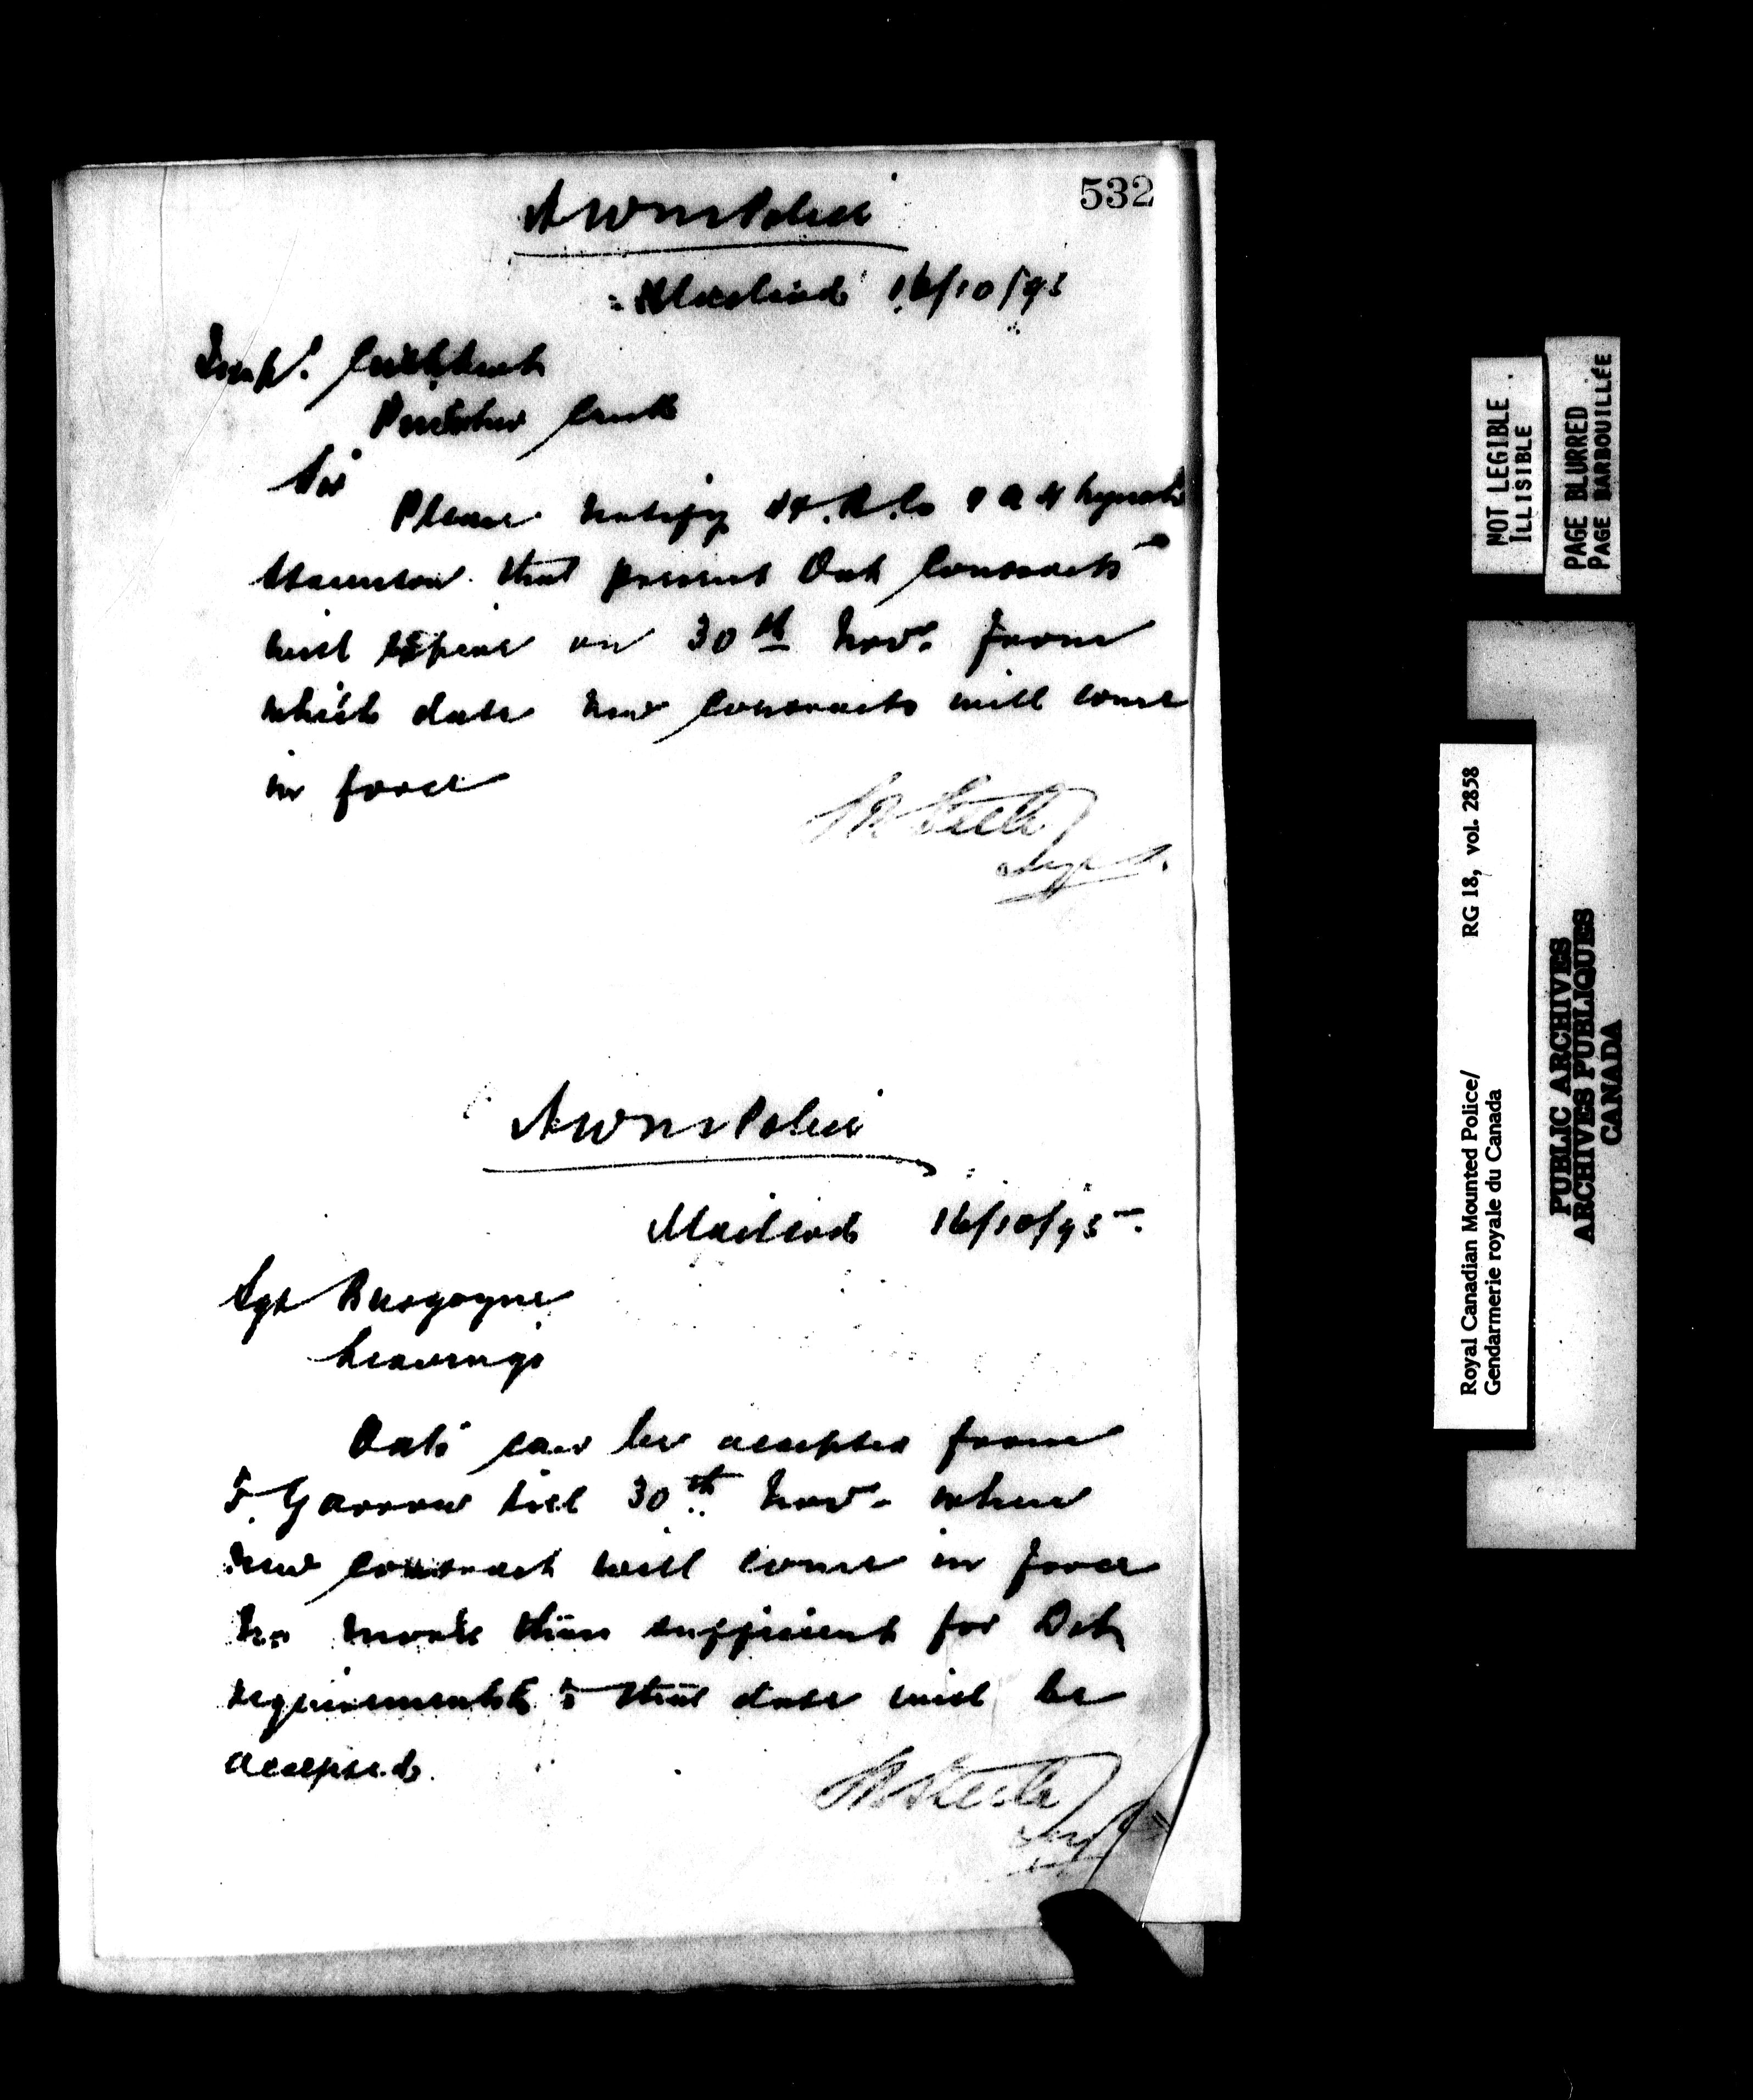 532
N W M Police
Macleod 16/10/95
Insp. Cuthbert
Pincher Creek
Sir
Please notify H. R. Co & A H Lynch
Staunton that present Oat Contracts
will expire on 30th Nov. from
which date new Contracts will come
in force
S B Steele
Supt.
N W M Police
Macleod 16/10/95
Sgt Burgoyne
Leavings
Oats can be accepted from
F. Garrow till 30th Nov. when
new contract will come in force
No more than sufficient for Det
requirements to that date will be
accepted.
S B Steele
Supt
NOT LEGIBLE
ILLISIBLE
PAGE BLURRED
PAGE BARBOUILLÉE
Royal Canadian Mounted Police/ RG 18, vol. 2858
Gendarmerie royale du Canada
PUBLIC ARCHIVES
ARCHIVES PUBLIQUES
CANADA